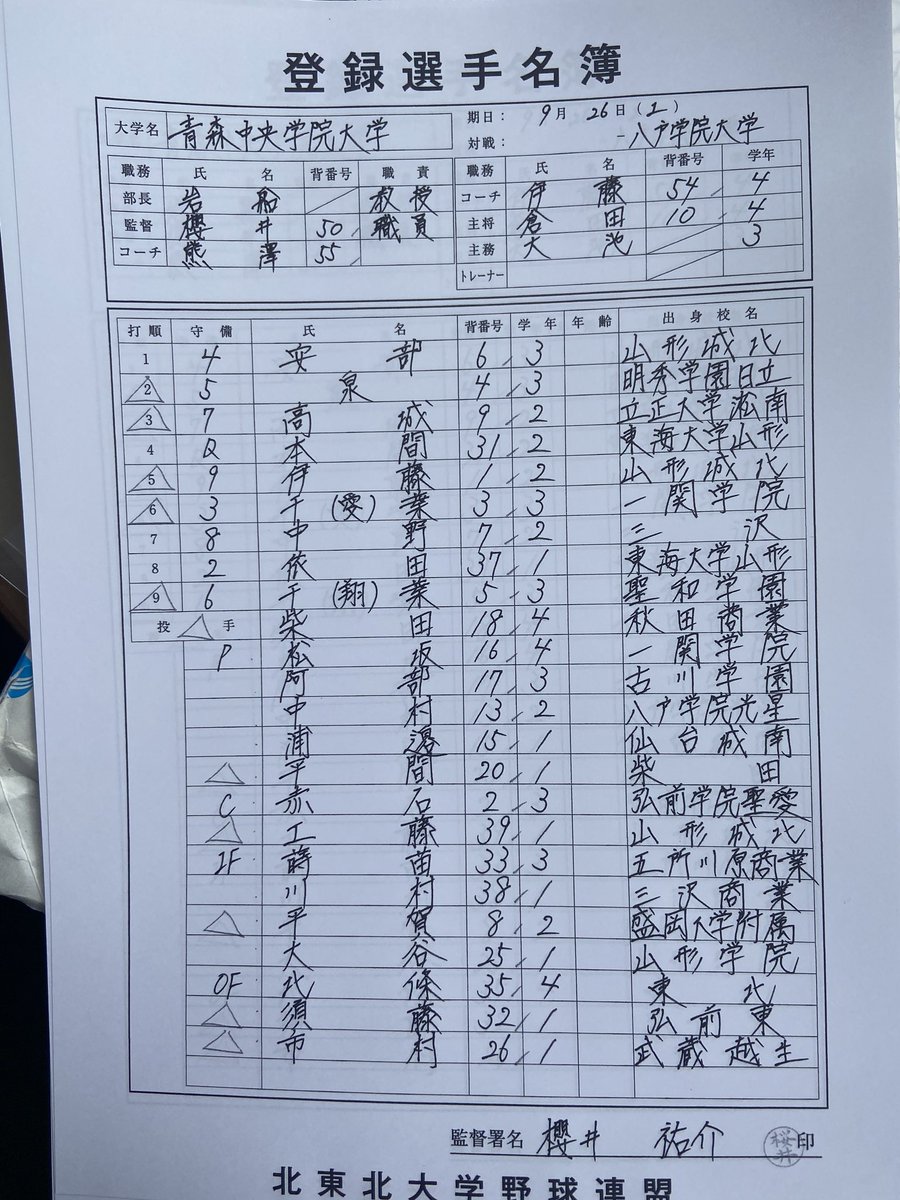 登録選手名簿
大学名 青森中央学院大学 期日： 9月 26日（1）
対戦： － 八戸学院大学
職務 氏名 背番号 職責 職務 氏名 背番号 学年
部長 岩船 教授 コーチ 伊藤 54 4
監督 櫻井 50 職員 主将 倉田 10 4
コーチ 熊澤 55 主務 大池 3
トレーナー
打順 守備 氏名 背番号 学年 年齢 出身校名
1 4 安部 6 3 山形城北
2 5 泉 4 3 明秀学園日立
3 7 高城 9 2 立正大学淞南
4 D 本間 31 2 東海大学山形
5 9 伊藤 1 2 山形城北
6 3 千(愛)葉 3 3 一関学院
7 8 中野 7 2 三沢
8 2 依田 37 1 東海大学山形
9 6 千(翔)葉 5 3 聖和学園
投手 柴田 18 4 秋田商業
P 松坂 16 4 一関学院
阿部 17 3 古川学園
中村 13 2 八戸学院光星
浦邉 15 1 仙台城南
平間 20 1 柴田
C 赤石 2 3 弘前学院聖愛
工藤 39 1 山形城北
IF 蒔苗 33 3 五所川原商業
川村 38 1 三沢商業
平賀 8 2 盛岡大学附属
大谷 25 1 山形学院
OF 北條 35 4 東北
須藤 32 1 弘前東
市村 26 1 武蔵越生
監督署名 櫻井 祐介 桜井 印
北東北大学野球連盟